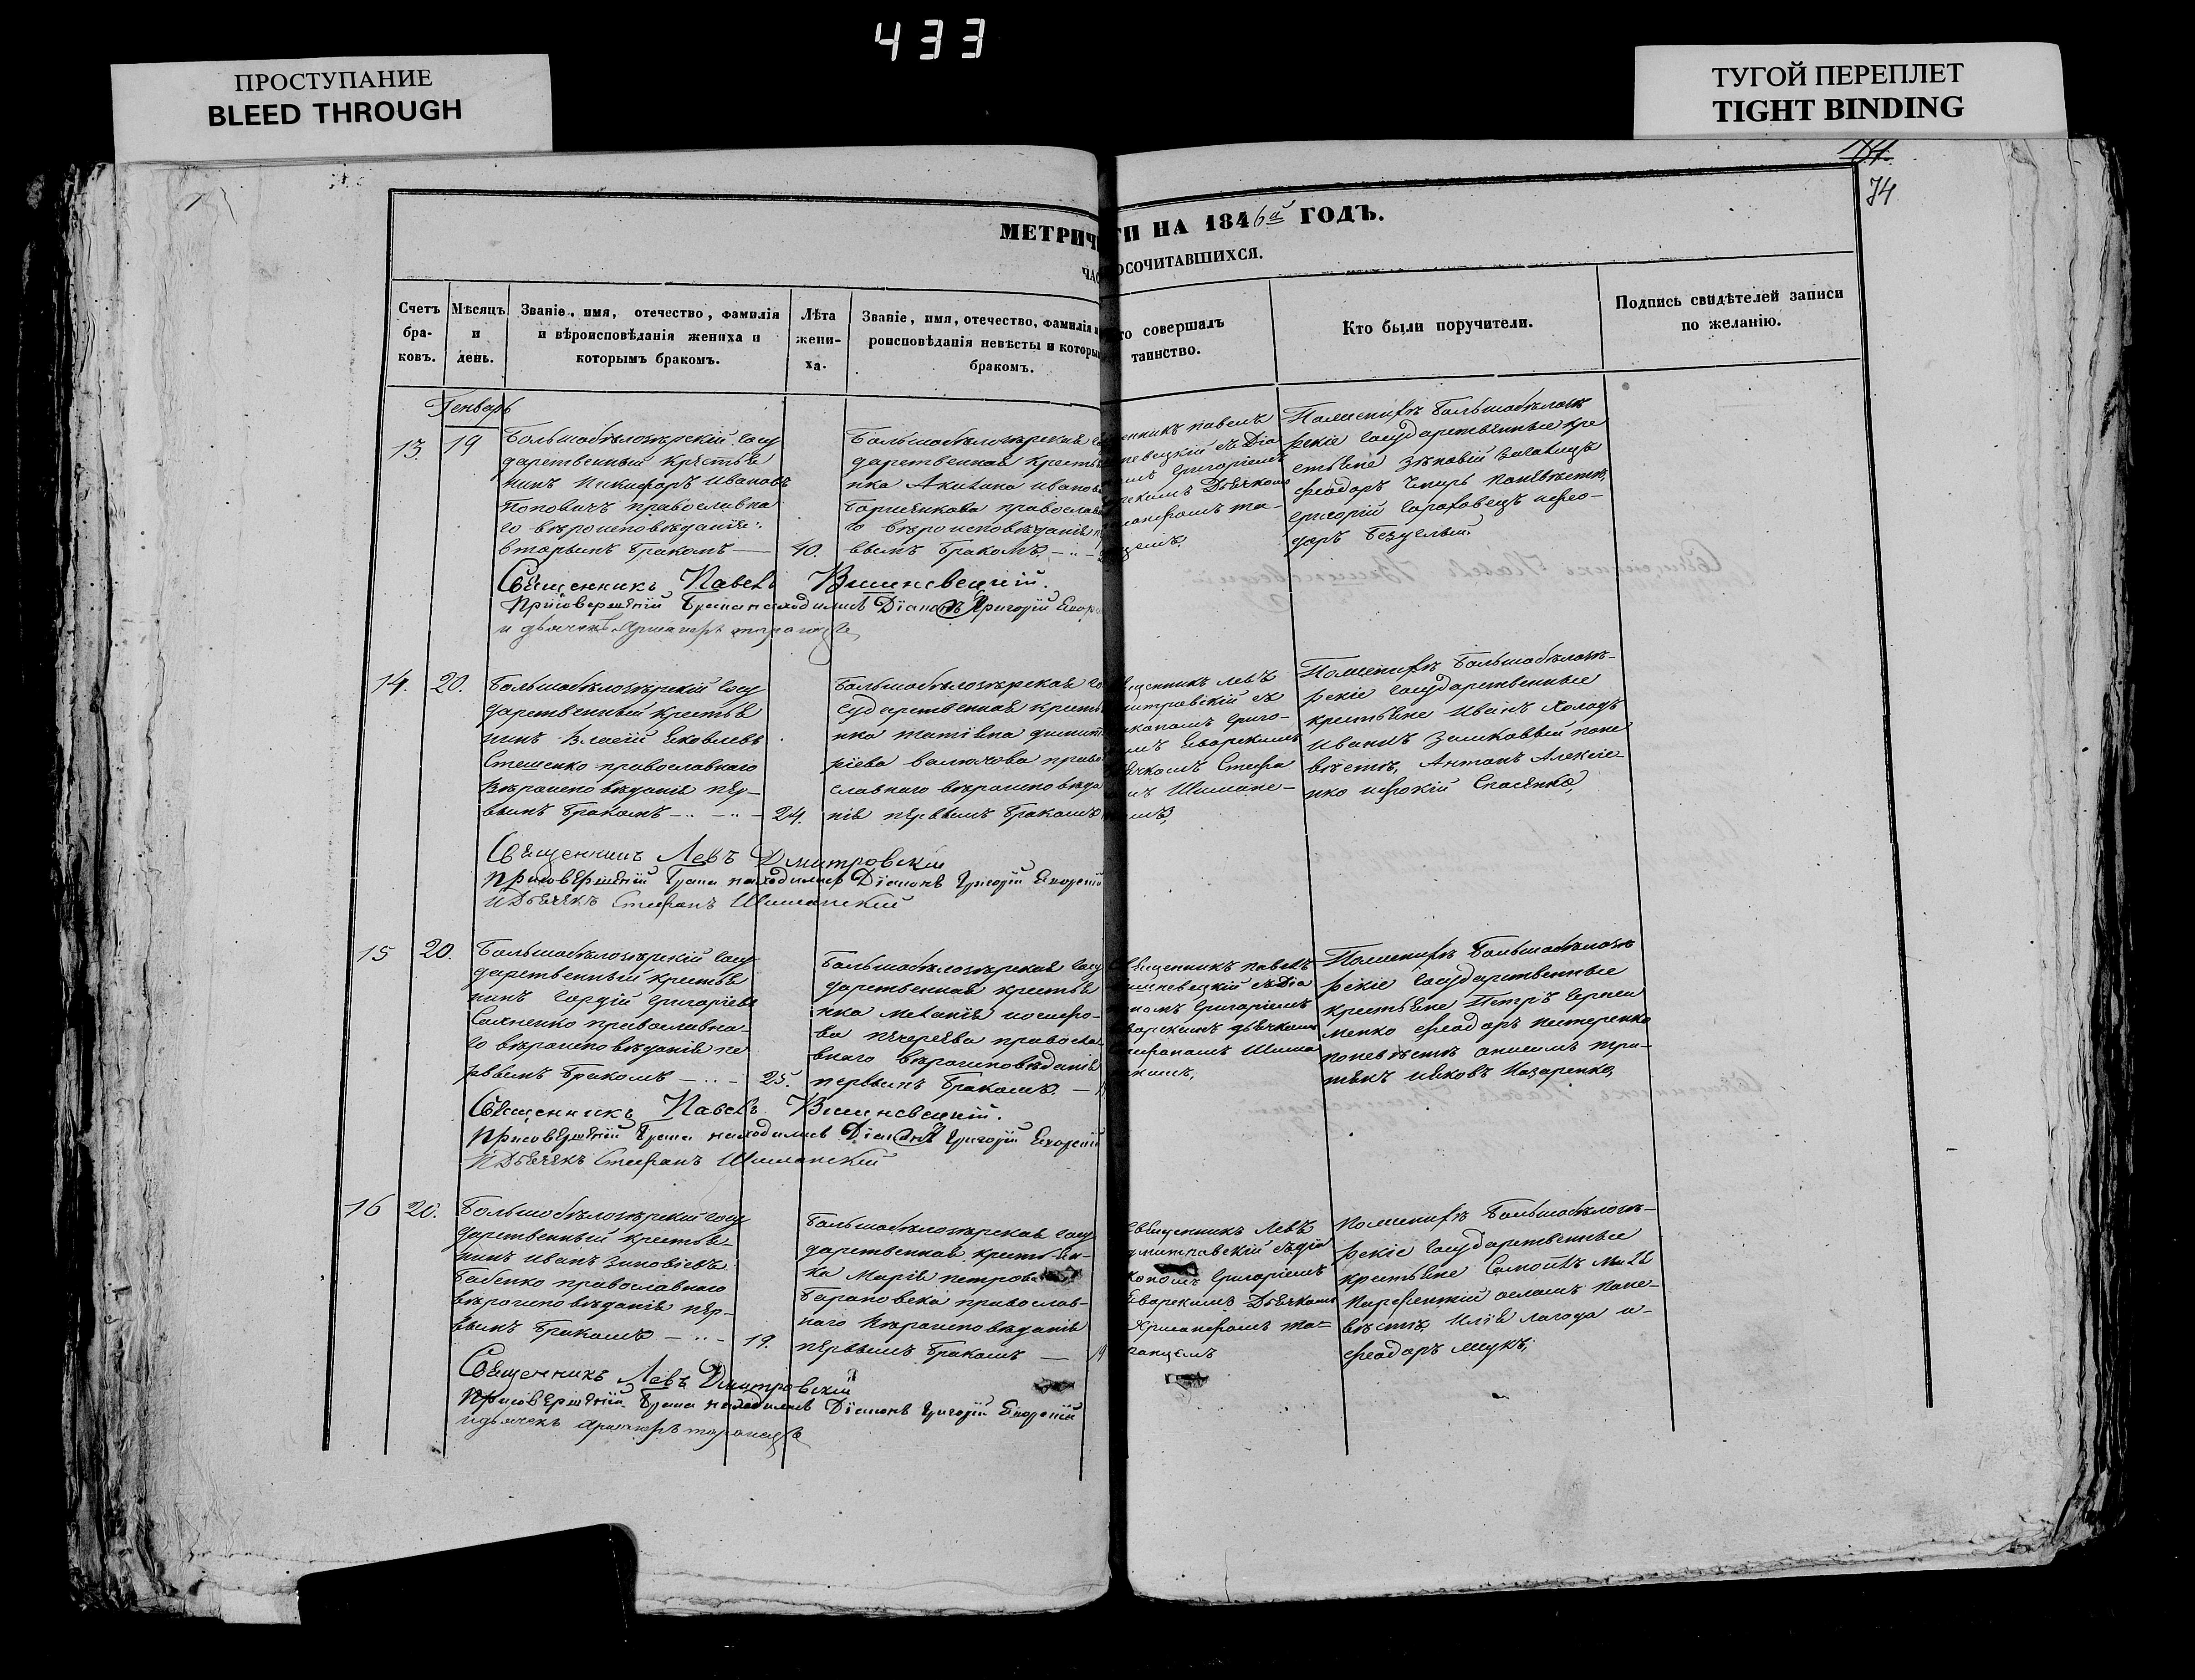 433
ПРОСТУПАНИЕ
BLEED THROUGH
ТУГОЙ ПЕРЕПЛЕТ
TIGHT BINDING
74
МЕТРИЧ
ГИ НА 1846й ГОДЪ.
ЧАС
ОСОЧИТАВШИХСЯ.
Счетъ бра-ковъ.
Мѣсяцъ и день.
Званіе, имя, отечество, фамилія
и вѣроисповѣданія жениха и
которымъ бракомъ.
Лѣта жени-ха.
Званіе, имя, отечество, фамилія и
роисповѣданія невѣсты и которы
бракомъ.
то совершалъ
таинство.
Кто были поручители.
Подпись свидѣтелей записи
по желанію.
Генварь
13. 19
Большобѣлозѣрскій госу
дарственный крестья
нинъ Никифоръ Ивановъ
Поповичъ православна
го вѣроисповѣданія
вторымъ бракомъ —
40.
Большобѣлозѣрская го
дарственная крестья
нка Акилина Иванова
православ
го вѣроисповѣданія п
вымъ бракомъ. —
енникъ Павелъ
невецкій съ Діа
мъ Григоріемъ
рскимъ Дьячкомъ
санфомъ та-
цемъ,
Большобѣлозѣ
рскіе государственные кре
стьяне Зѣновій
Феодоръ по невѣстѣ,
Григорій Гороховецъ и Фео-
доръ Безуглый.
Священникъ Павелъ Вишневецкій.
При совершеній брака находились Діаконъ Григорій Еворс
и дьячекъ
14. 20.
Большобѣлозѣрскій госу
дарственный крестья
нинъ Власій Яковлевъ
Стешенко православнаго
вѣроисповѣданія пер-
вымъ бракомъ —
24.
Большобѣлозѣрская го
сударственная крестья
нка Татіяна Димит
ріева право
славнаго вѣроисповѣда
нія первымъ бракомъ
щенникъ Левъ
митровскій съ
іакономъ Григо-
мъ Еворскимъ
ячкомъ Стефа
мъ Шиманс-
имъ,
Большобѣлозѣ-
рскіе государственные
крестьяне Иванъ Холодъ
Иванъ по не
вѣстѣ, Антонъ Алексіе-
нко и Фокій Спасенко,
Священникъ Левъ Дмитровскій
При совершеній брака находились Діаконъ Григорій Еворскій
и Дьячекъ Стефанъ Шиманскій
15 20.
Большобѣлозѣрскій госу
дарственный крестья
нинъ Гордій Григоріевъ
православна-
го вѣроисповѣданія пе
рвымъ бракомъ —
25.
Большобѣлозѣрская госу
дарственная крестья
нка Меланія Іосифо-
ва правосла
внаго вѣроисповѣданія
первымъ бракомъ. —
вященникъ Павелъ
ишневецкій съ Діа
кономъ Григоріемъ
ворскимъ дьячкомъ
тефаномъ Шима
нскимъ,
Большобѣлозѣ
рскіе государственные
крестьяне Петръ
Феодоръ Нестеренко
по невѣстѣ Анисимъ
и Яковъ Назаренко,
Священникъ Павелъ Вишневецкій.
При совершеній брака находились Діаконъ Григорій Еворскій
и Дьячекъ Стефанъ Шиманскій
16 20.
Большобѣлозѣрскій госу
дарственный крестья-
нинъ Иванъ Зиновіевъ
Бабенко православнаго
вѣроисповѣданія пер-
вымъ бракомъ —
19.
Большобѣлозѣрская госу
дарственная крестьян-
ка Марія Петрова
православ-
наго вѣроисповѣданія
первымъ бракомъ —
19
Священникъ Левъ
Дмитровскій съ діа
кономъ Григоріемъ
Еворскимъ Дьячкомъ
Большобѣлозѣ-
рскіе государственные
крестьяне
Парфентій по не-
вѣстѣ, Илія Лагода и
Феодоръ
Священникъ Левъ Дмитровскій
При совершеній брака находились Діаконъ Григорій Еворскій
и дьячекъ